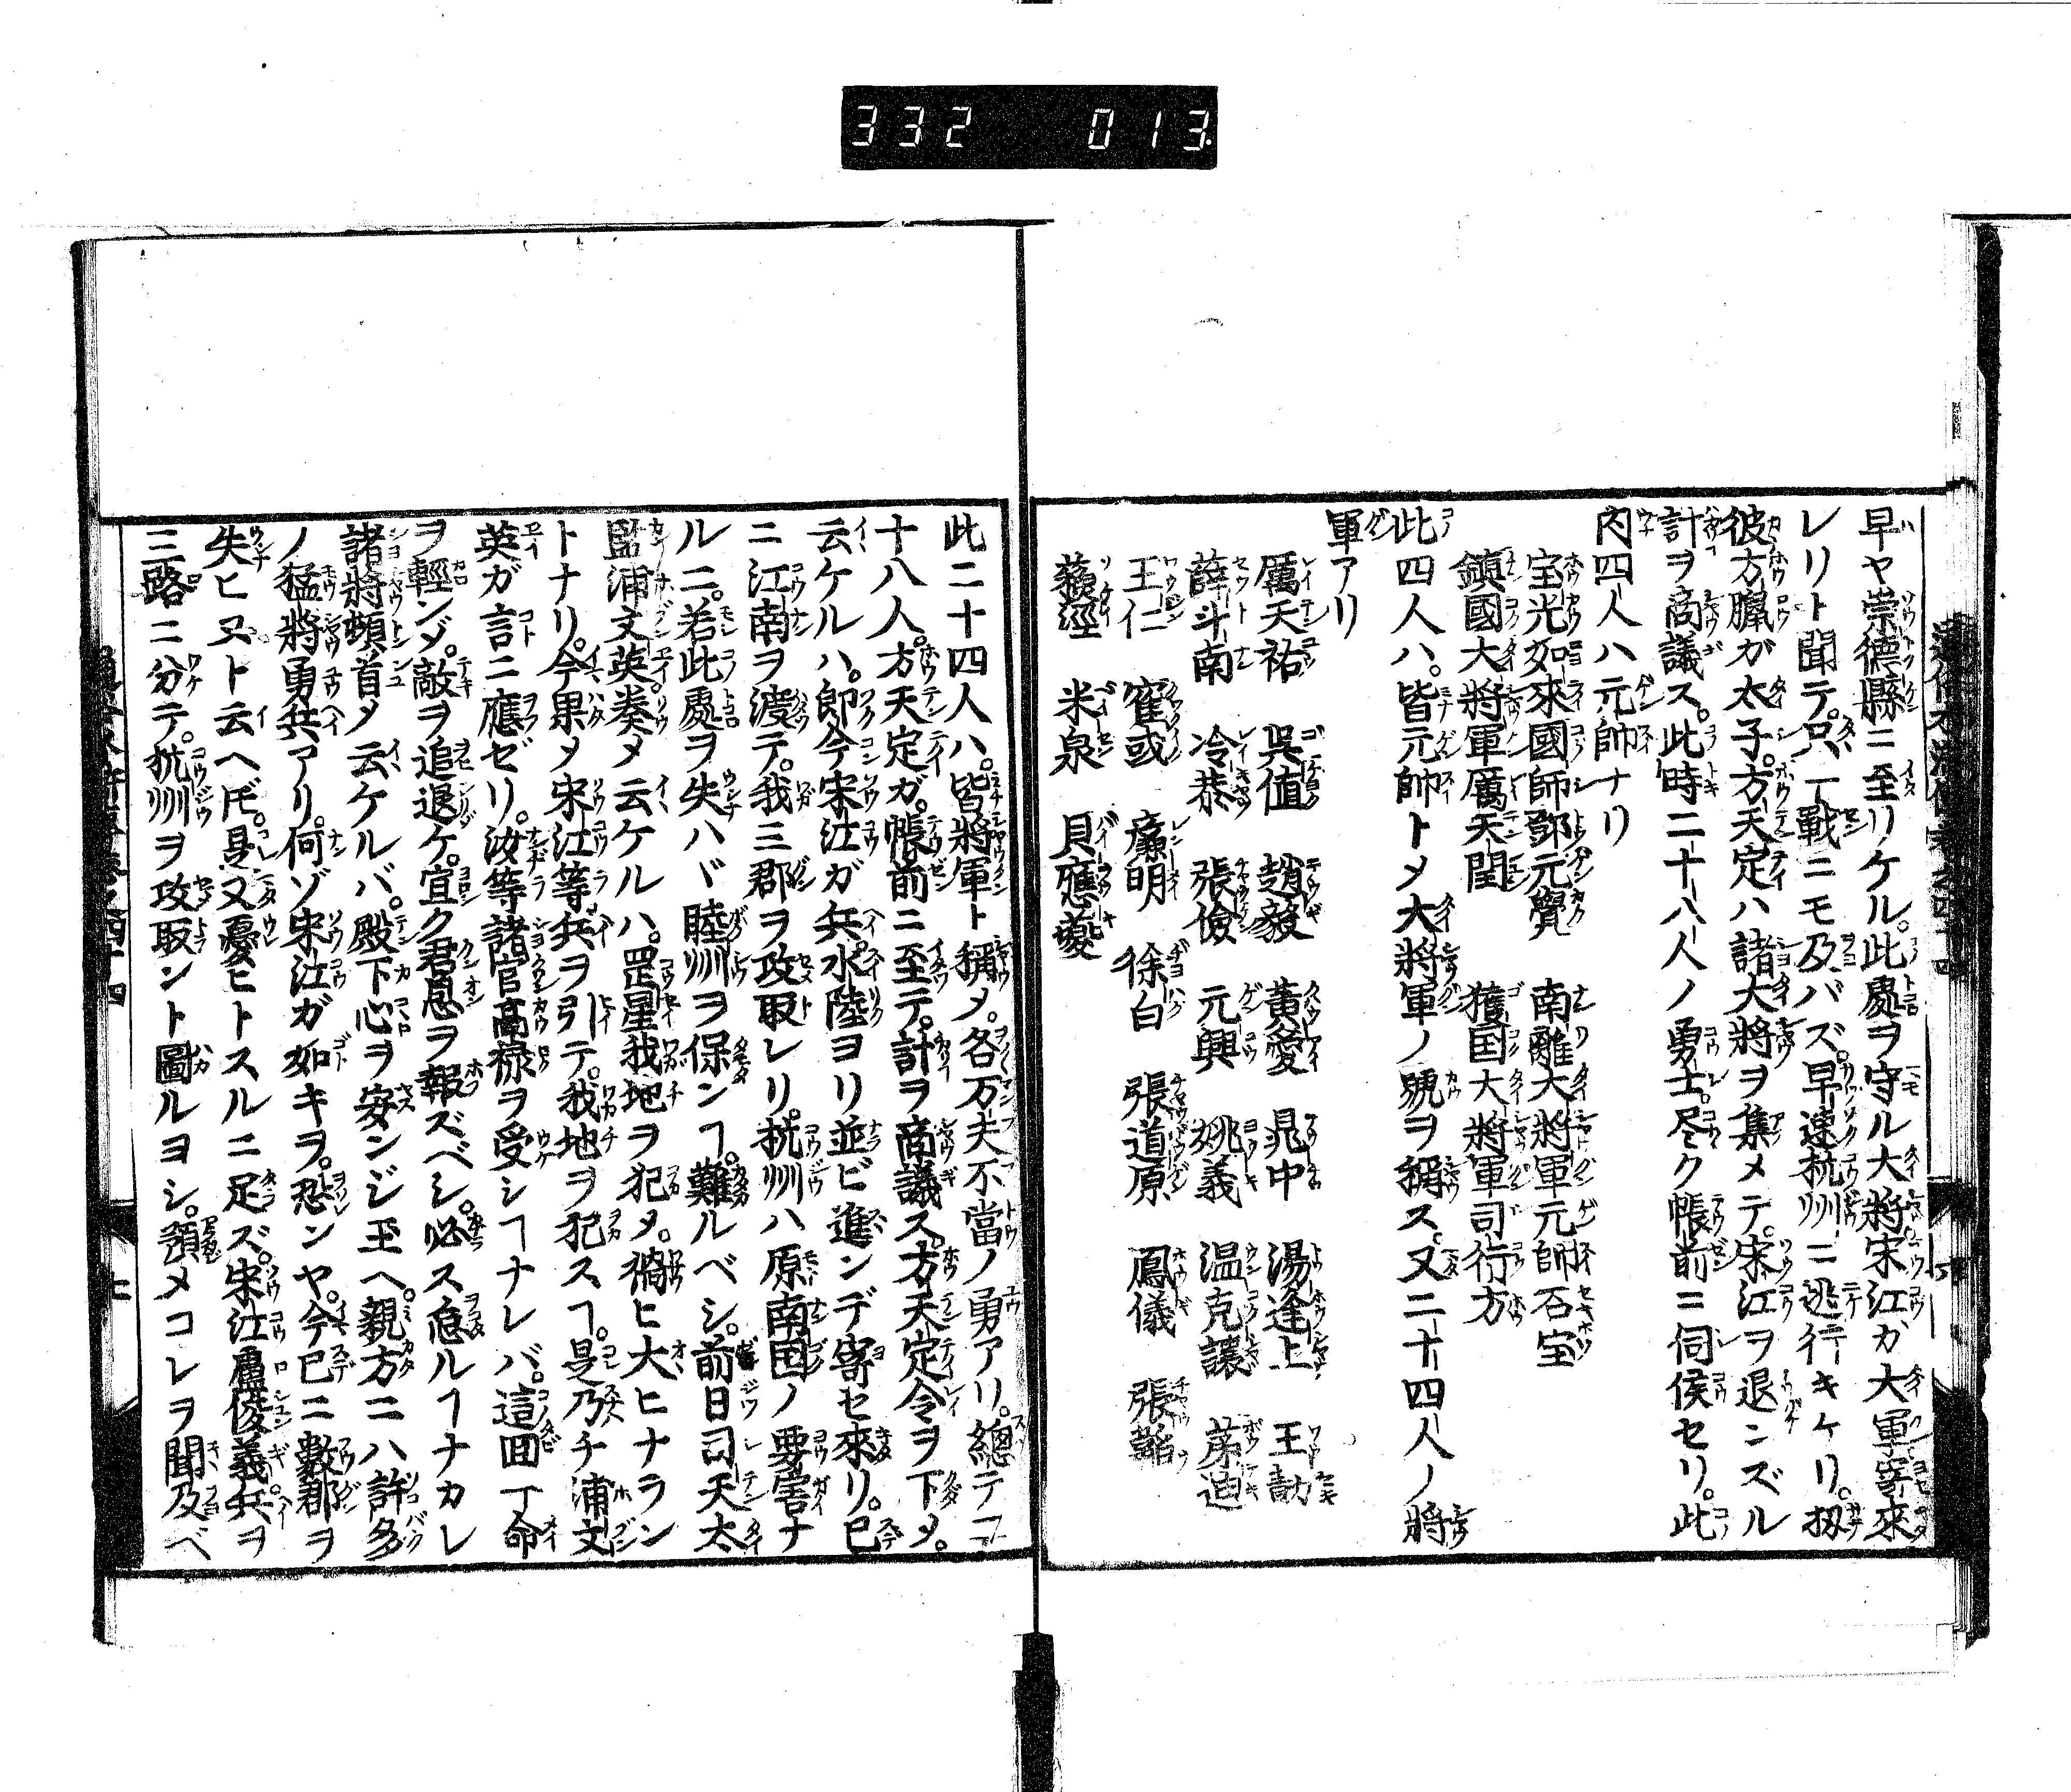 332 013
早ヤ崇德縣ニ至リケル。此處ヲ守ル大將。宋江カ大軍寄來
レリト聞テ。只一戰ニモ及バズ。早速杭州ニ逃行キケリ。扨
彼方臘ガ太子。方天定ハ諸大將ヲ集メテ。宋江ヲ退ンズル
計ヲ商議ス。此時二十八人ノ勇士。尽ク帳前ニ伺侯セリ。此
内四人ハ元帥ナリ
宝光如來國師鄧元覺 南離大將軍元師石宝
鎮國大將軍厲天閏 護国大將軍司行方
此四人ハ。皆元帥トメ大將軍ノ號ヲ稱ス。又二十四人ノ將
軍アリ
厲天祐 呉値 趙毅 黃愛 晁中 湯逢士 王勣
薛斗南 冷恭 張儉 元興 姚義 温克讓 茅迪
王仁 崔彧 廉明 徐白 張道原 鳳儀 張韜
蘓涇 米泉 貝應夔
此二十四人ハ。皆將軍ト稱メ。各万夫不當ノ勇アリ。總テ二
十八人。方天定ガ。帳前ニ至テ。計ヲ商議ス。方天定令ヲ下メ。
云ケルハ。即今宋江ガ兵。水陸ヨリ並ビ進ンデ寄セ來リ。已
ニ江南ヲ渡テ。我三郡ヲ攻取レリ。杭州ハ原南国ノ要害ナ
ルニ。若此處ヲ失ハヾ睦州ヲ保ンヿ。難ルベシ。前日司天太
監浦文英奏メ云ケルハ。罡星我地ヲ犯メ。禍ヒ大ヒナラン
トナリ。今果メ宋江等兵ヲ引テ。我地ヲ犯スヿ。是乃チ浦文
英ガ言ニ應ゼリ。汝等諸官高禄ヲ受シヿナレバ。這囬丁命
ヲ輕ンゾ。敵ヲ追退ケ。宜ク君恩ヲ報ズベシ。必ス怠ルヿナカレ
諸將頓首メ云ケルバ。殿下心ヲ安ンジ玉ヘ。親方ニハ許多
ノ猛將勇兵アリ。何ゾ宋江ガ如キヲ。恐ンヤ。今已ニ數郡ヲ
失ヒヌト云ヘ𪜈。是又憂ヒトスルニ足ズ。宋江盧俊義兵ヲ
三路ニ分テ。杭州ヲ攻取ント圖ルヨシ。預メコレヲ聞及ベ